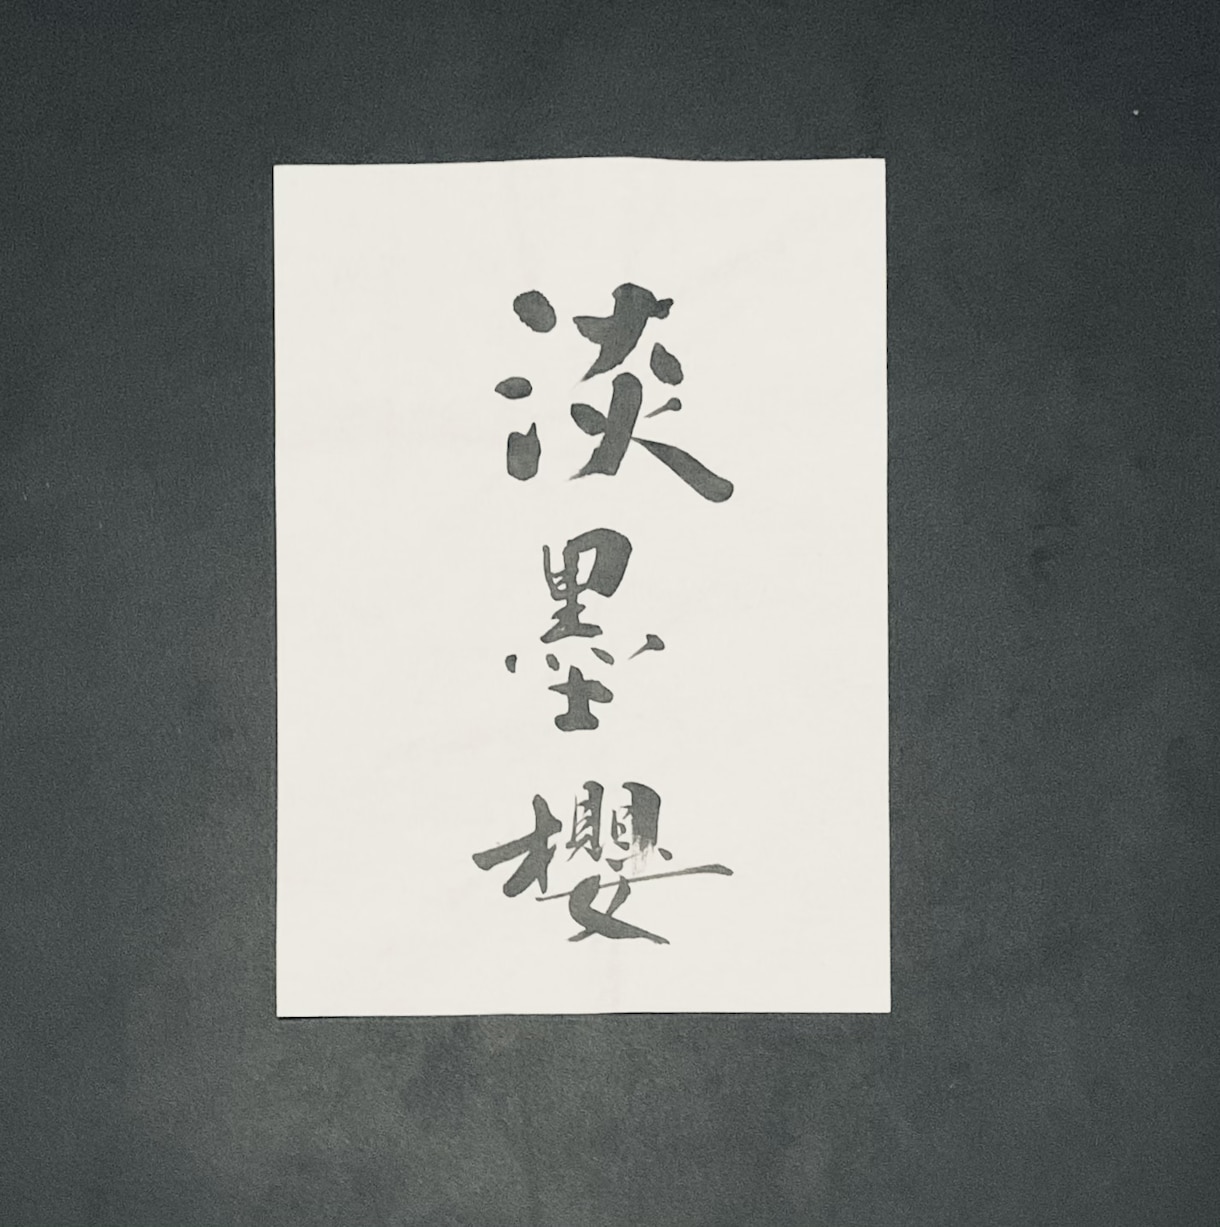 淡墨櫻